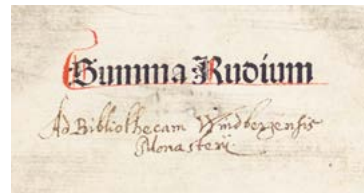 Summa Rudium
Ad Bibliothecam Windbergensis
Monasterij